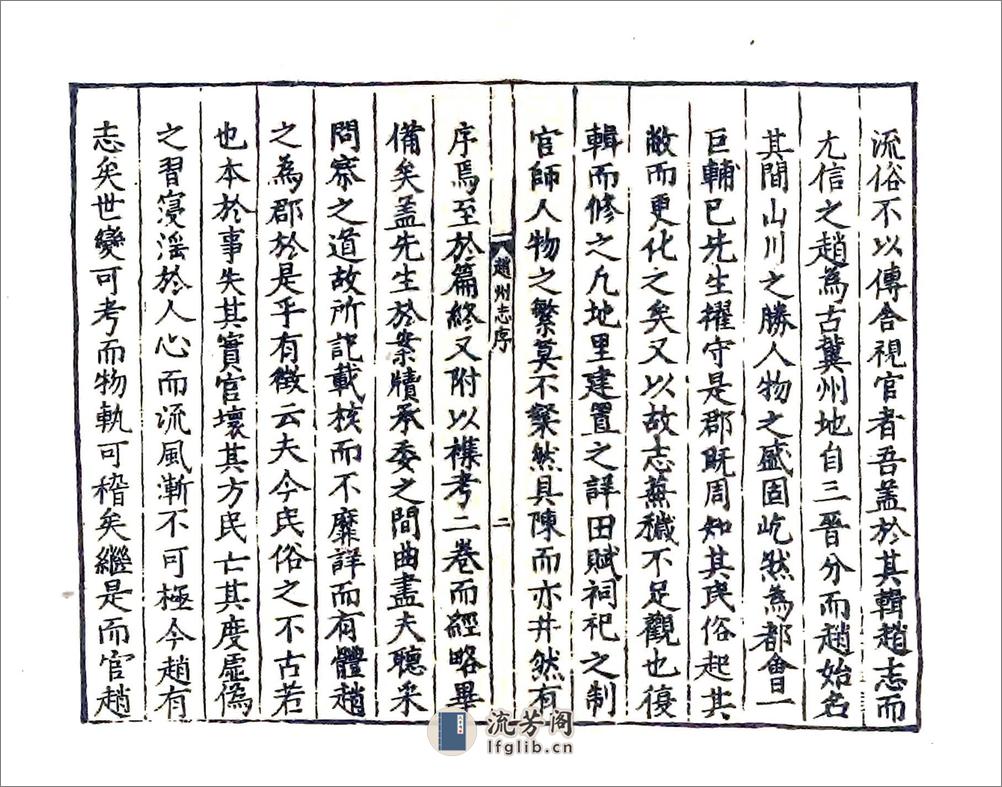 流俗不以傳舎視官者吾蓋於其輯趙志而
尤信之趙為古冀州地自三晉分而趙始名
其間山川之勝人物之盛固屹然為都會一
巨輔已先生擢守是郡既周知其民俗起其
敝而更化之矣又以故志蕪穢不足觀也復
輯而修之凡地里建置之詳田賦祠祀之制
官師人物之繁莫不粲然具陳而亦井然有
趙州志序
二
序焉至於篇終又附以襍考二卷而經略畢
備矣蓋先生於案牘承委之間曲盡夫聽采
問察之道故所記載核而不靡詳而有體趙
之為郡於是乎有徵云夫今民俗之不古若
也本於事失其實官壞其方民亡其度虛偽
之習寖淫於人心而流風漸不可極今趙有
志矣世變可考而物軌可稽矣繼是而官趙
流芳阁
lfglib.cn